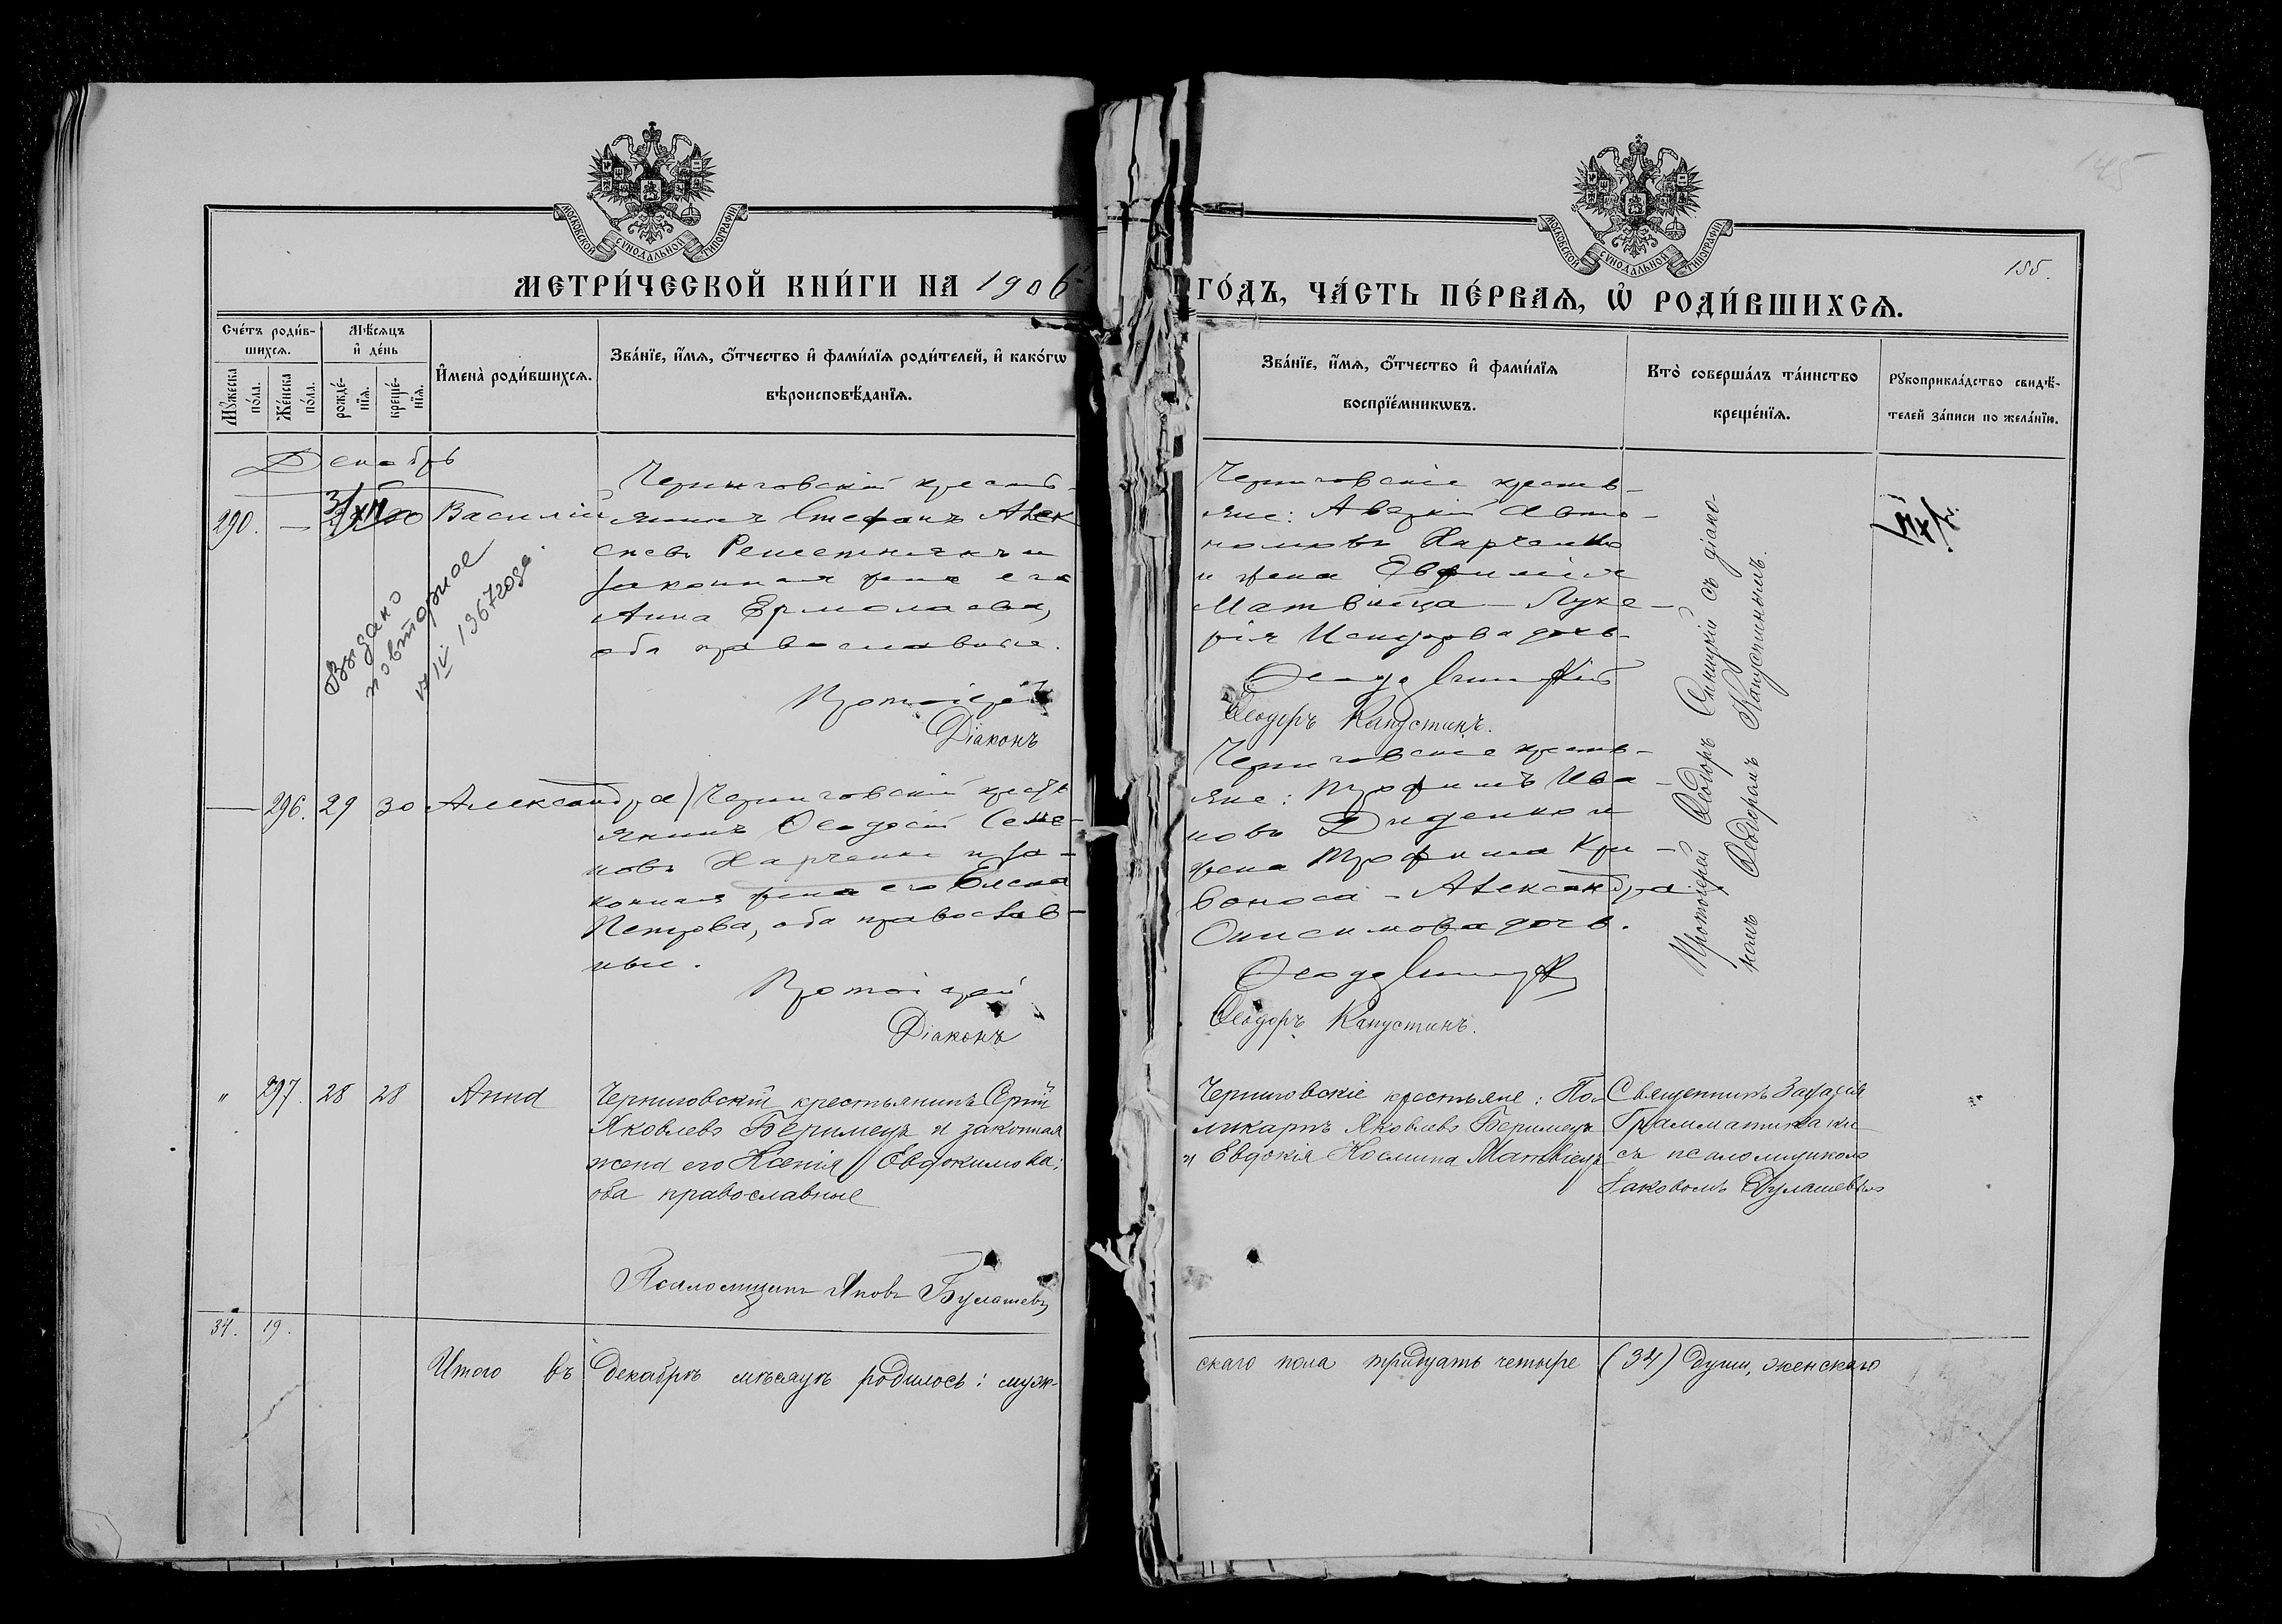 145
МОСКОВСКОЙ СѴНОДАЛЬНОЙ ТИПОГРАФІИ
МОСКОВСКОЙ СѴНОДАЛЬНОЙ ТИПОГРАФІИ
155.
МЕТРИ́ЧЕСКОЙ КНИ́ГИ НА 1906
ГО́ДЪ, ЧА́СТЬ ПЕ́РВАѦ, Ѽ РОДИ́ВШИХСѦ.
Сче́тъ роди́в-
шихсѧ.
Мꙋ́жеска по́ла.
Же́нска по́ла.
Мѣ́сѧцъ
и҆ де́нь
рожде́-
нїѧ.
креще́-
нїѧ.
И҆мена̀ роди́вшихсѧ.
Зва́нїе, и҆́мѧ, ѻ҆́тчество и҆ фами́лїѧ роди́телей, и҆ како́гѡ
вѣроисповѣ́данїѧ.
Зва́нїе, и҆́мѧ, ѻ҆́тчество и҆ фами́лїѧ
воспрїе́мникѡвъ.
Кто̀ соверша́лъ та́инство
креще́нїѧ.
Рꙋкоприкла́дство свидѣ́-
телей за́писи по жела́нїю.
Декабрь
290. — Василій
Черниговскій кресть-
янинъ Стефанъ Алек
сеевъ Решетнякъ и
законная жена его
Анна Ермолаева,
оба православные.
Протоіерей
Діаконъ
Выдано
повторное
17/IV 1967 года.
Черниговскіе кресть-
яне: Авто-
номовъ Харченко
и жена Евфимія
Матвийца - Луке-
рія дочь
Ѳеодоръ Капустинъ.
Протоіерей Ѳеодоръ Синицкій съ діако-
номъ Ѳеодоромъ Капустинымъ.
— 296. 29 30 Александра
Черниговскій кресть
янинъ Ѳеодосій Семе-
новъ Харченко и за-
конная жена его Елена
Петрова, оба православ-
ные.
Протоіерей
Діаконъ
Черниговскіе кресть-
яне: Трофимъ Ива-
новъ Диденко и
жена Трофима Кри-
воноса - Александра
Онисимова дочь.
Ѳеодоръ Капустинъ.
" 297. 28 28 Анна
Черниговскій крестьянинъ Сергій
Яковлевъ Беримецъ и законная
жена его Ксенія Евдокимова;
оба православные
Псаломщикъ Яковъ Булашевъ
Черниговскіе крестьяне: По-
ликарпъ Яковлевъ Беримецъ
и Евдокія Космина Матвіецъ
Священникъ Захарія
съ псаломщикомъ
Іаковомъ Булашевымъ
34. 19.
Итого въ Декабрѣ мѣсяцѣ родилось: муж-
скаго пола тридцать четыре (34) души, женскаго